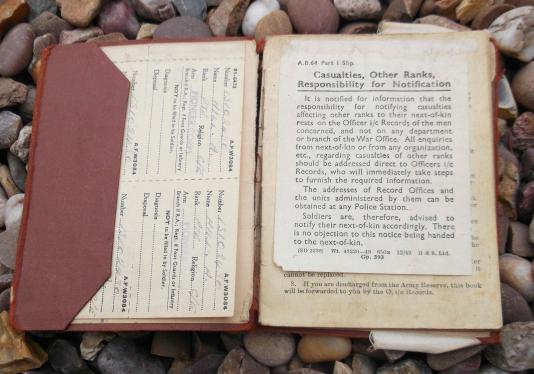 A.F.W3084
Number
Name
Rank
Religion
Arm PIONEER
Branch if R.A.; Regt. if Foot Guards or Infantry
NOT to be filled in by Soldier.
Diagnosis
Disposal
A.F.W3084
Number
A.F.W3084
Number
Name
Rank
Religion
Arm
Branch if R.A.; Regt. if Foot Guards or Infantry
NOT to be filled in by Soldier.
Diagnosis
Disposal
A.F.W3084
Number
A.B.64 Part I Slip.
Casualties, Other Ranks,
Responsibility for Notification
It is notified for information that the
responsibility for notifying casualties
affecting other ranks to their next-of-kin
rests on the Officer i/c Records of the men
concerned, and not on any department
or branch of the War Office. All enquiries
from next-of-kin or from any organization,
etc., regarding casualties of other ranks
should be addressed direct to Officers i/c
Records, who will immediately take steps
to furnish the required information.
The addresses of Record Offices and
the units administered by them can be
obtained at any Police Station.
Soldiers are, therefore, advised to
notify their next-of-kin accordingly. There
is no objection to this notice being handed
to the next-of-kin.
Wt. 45220—49 650M 12/43 H & S, Ltd.
Gp. 393
cannot be replaced.
3. If you are discharged from the Army Reserve, this book
will be forwarded to you by the O. i/c Records.